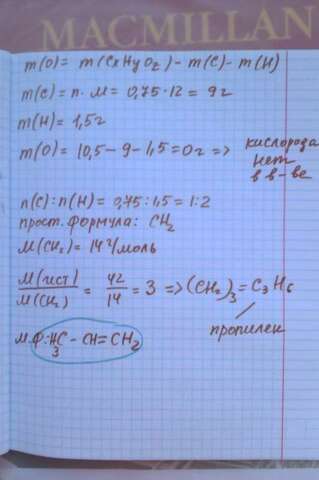 MACMILLAN
m(O) = m(CxHyOz) - m(C) - m(H)
m(C) = n · M = 0,75·12 = 9г
m(H) = 1,5г
m(O) = 10,5 - 9 - 1,5 = 0г => кислорода нет в в-ве
n(C):n(H) = 0,75:1,5 = 1:2
прост. формула: CH2
M(CH2) = 14 г/моль
M(ист)/M(CH2) = 42/14 = 3 => (CH2)3 = C3H6
пропилен
м.ф: H3C - CH = CH2